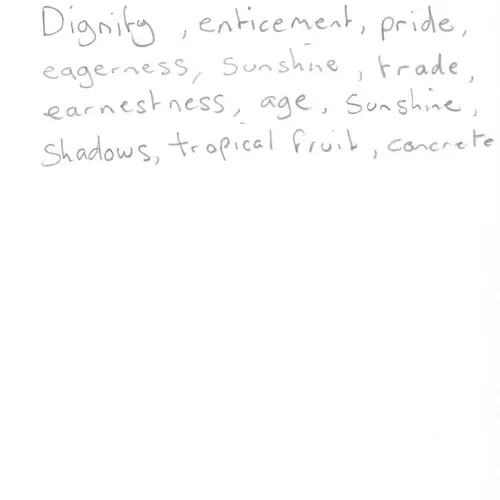 Dignity, enticement, pride,
eagerness, Sunshine, trade,
earnestness, age, Sunshine,
Shadows, tropical fruit, concrete